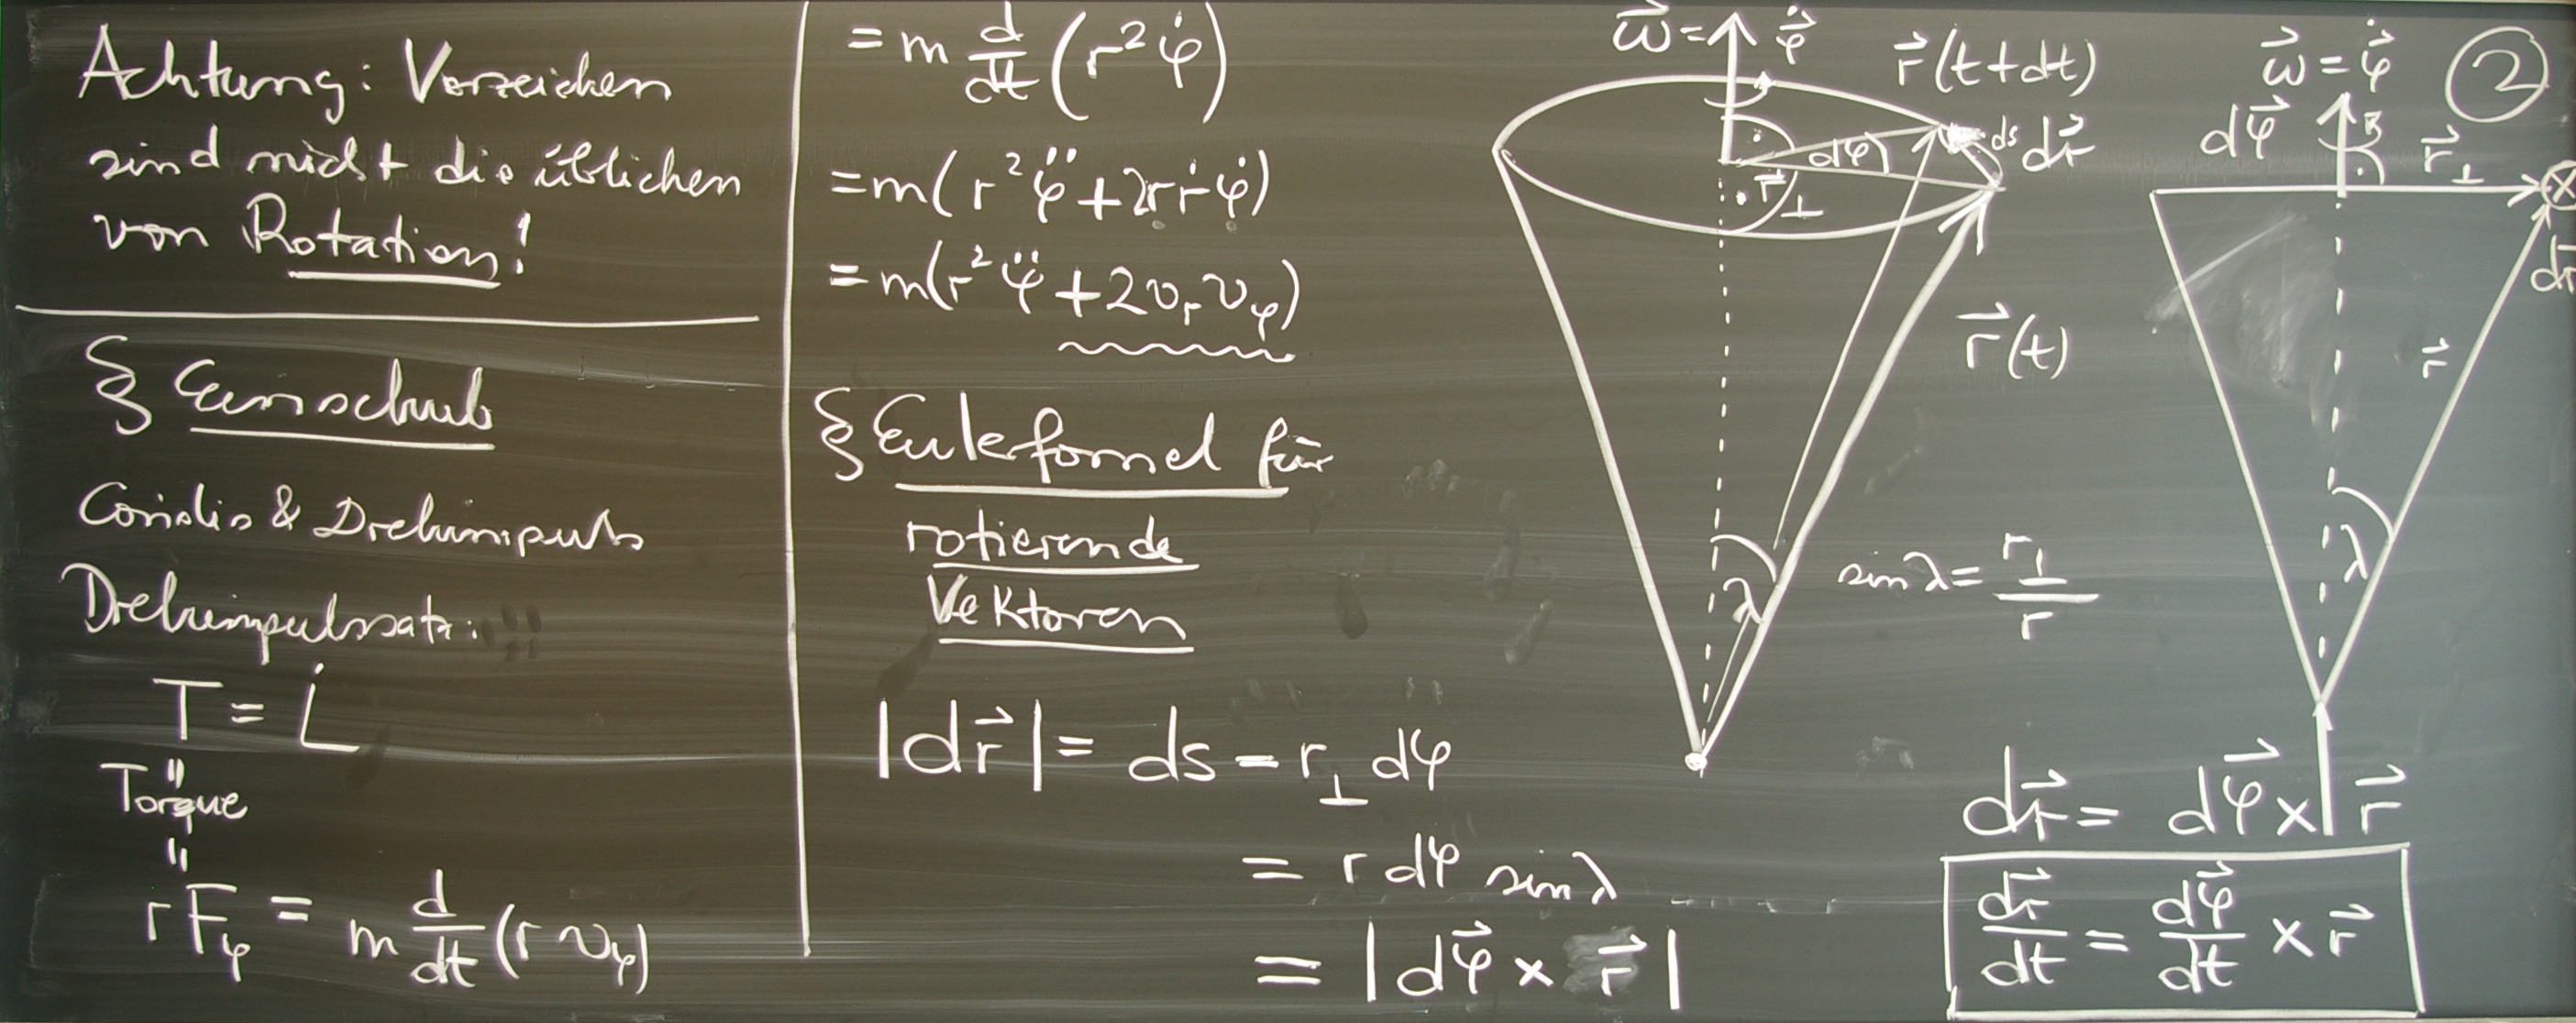 Achtung: Vorzeichen
sind nicht die üblichen
von Rotation!
§ Einschub
Coriolis & Drehimpuls
Drehimpulssatz:
T = L̇
"
Torque
"
rF_φ = m d/dt (r v_φ)
= m d/dt (r² φ̇)
= m(r² φ̈ + 2rṙφ̇)
= m(r² φ̈ + 2v_r v_φ)
§ Euleformel für
rotierende
Vektoren
|dr⃗| = ds = r_⊥ dφ
= r dφ sin λ
= |dφ⃗ × r⃗|
ω⃗ = φ⃗̇
r⃗(t+dt)
ds dr⃗
dφ
r⃗_⊥
r⃗(t)
λ
sin λ = r_⊥/r
ω⃗ = φ⃗̇
②
dφ⃗
r⃗_⊥
dr⃗
r⃗
λ
dr⃗ = dφ⃗ × r⃗
dr⃗/dt = dφ⃗/dt × r⃗